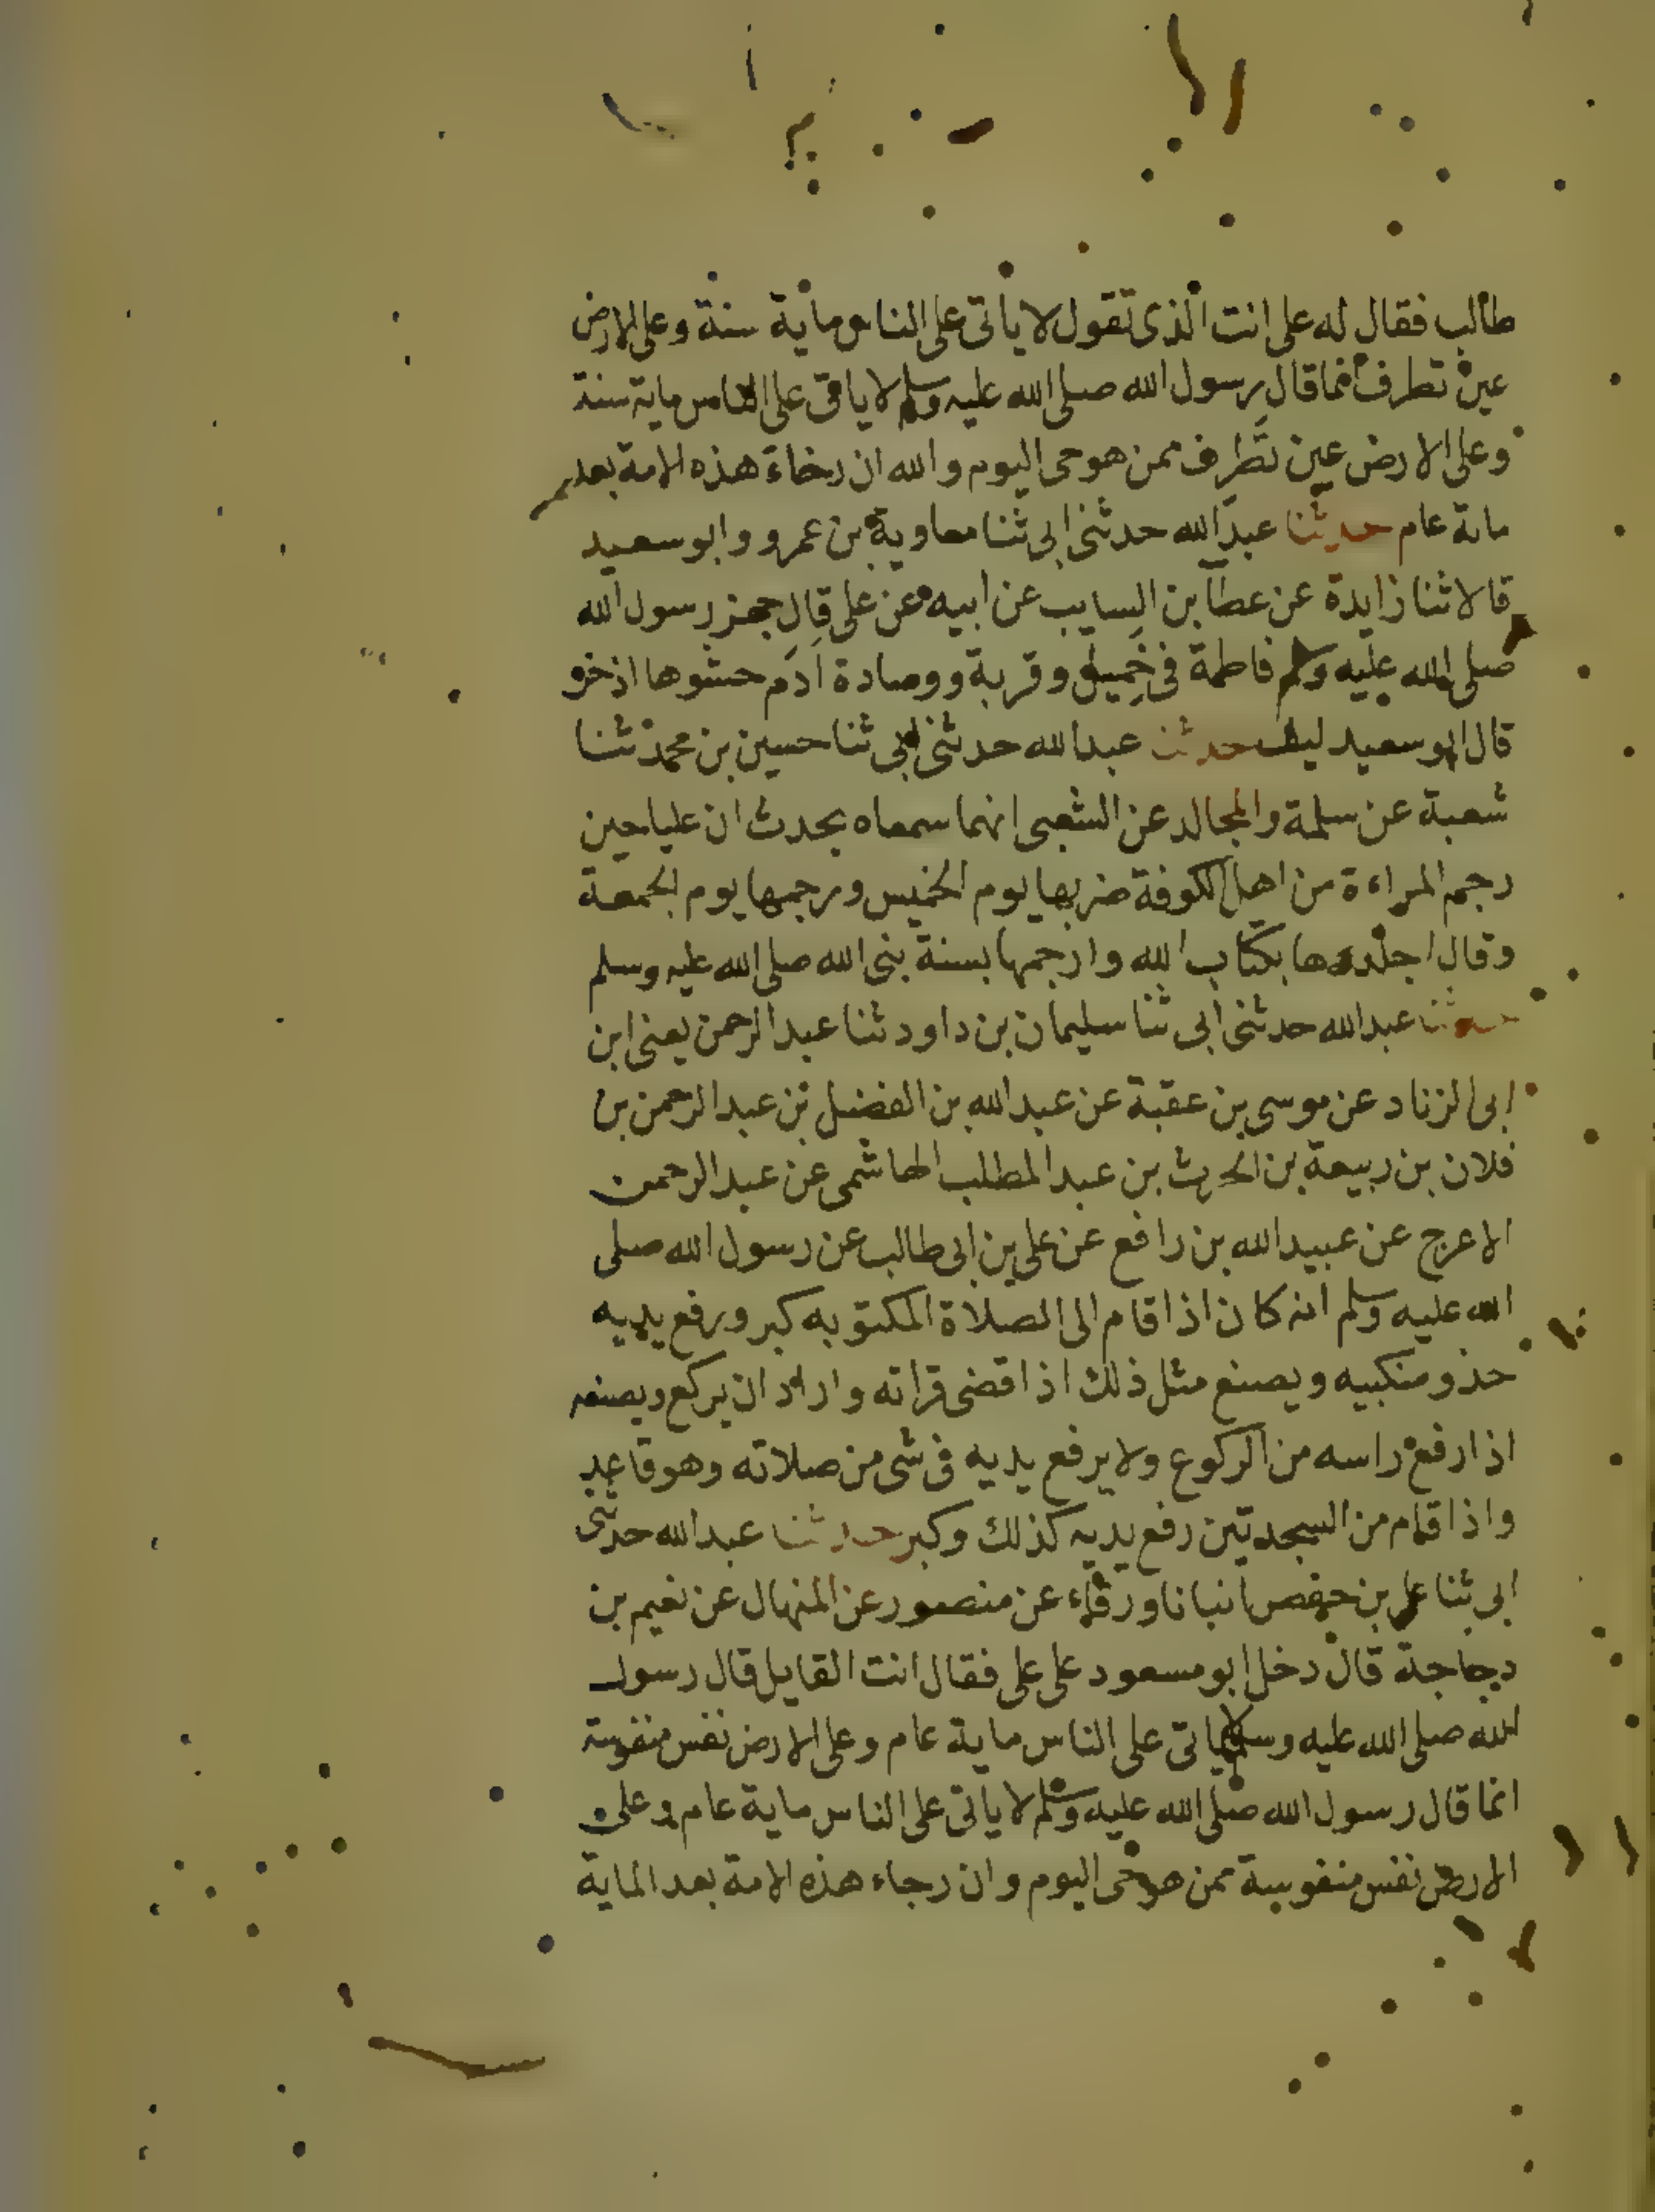 طالب فقال له على انت الذى تقول لا ياتى على الناس ماية سنة وعلى الارض
عين تطرف انما قال رسول الله صلى الله عليه وسلم لا ياتى على الناس ماية سنة
وعلى الارض عين تطرف ممن هو حى اليوم والله ان رخاء هذه الامة بعد
ماية عام حدثنا عبد الله حدثنى ابى ثنا معاوية بن عمرو وابو سعيد
قالا ثنا زايدة عن عطا بن السايب عن ابيه عن على قال جهز رسول الله
صلى الله عليه وسلم فاطمة فى خميل وقربة ووسادة ادم حشوها اذخر
قال ابو سعيد ليف حدثنا عبد الله حدثنى ابى ثنا حسين بن محمد ثنا
شعبة عن سلمة والمجالد عن الشعبى انهما سمعاه يحدث ان عليا حين
رجم المراءة من اهل الكوفة ضربها يوم الخميس ورجمها يوم الجمعة
وقال اجلدها بكتاب الله وارجمها بسنة نبى الله صلى الله عليه وسلم
حدثنا عبد الله حدثنى ابى ثنا سليمان بن داود ثنا عبد الرحمن يعنى ابن
ابى الزناد عن موسى بن عقبة عن عبد الله بن الفضل بن عبد الرحمن بن
فلان بن ربيعة بن الحرث بن عبد المطلب الهاشمى عن عبد الرحمن
الاعرج عن عبيد الله بن رافع عن على بن ابى طالب عن رسول الله صلى
الله عليه وسلم انه كان اذا قام الى الصلاة المكتوبه كبر ورفع يديه
حذو منكبيه ويصنع مثل ذلك اذا قضى قراته واراد ان يركع ويصنعه
اذا رفع راسه من الركوع ولا يرفع يديه فى شى من صلاته وهو قاعد
واذا قام من السجدتين رفع يديه كذلك وكبر حدثنا عبد الله حدثنى
ابى ثنا على بن حفص انبانا ورقاء عن منصور عن المنهال عن نعيم بن
دجاجة قال دخل ابو مسعود على على فقال انت القايل قال رسول
الله صلى الله عليه وسلم لا ياتى على الناس ماية عام وعلى الارض نفس منفوسة
انما قال رسول الله صلى الله عليه وسلم لا ياتى على الناس ماية عام وعلى
الارض نفس منفوسة ممن هو حى اليوم وان رجاء هذه الامة بعد الماية